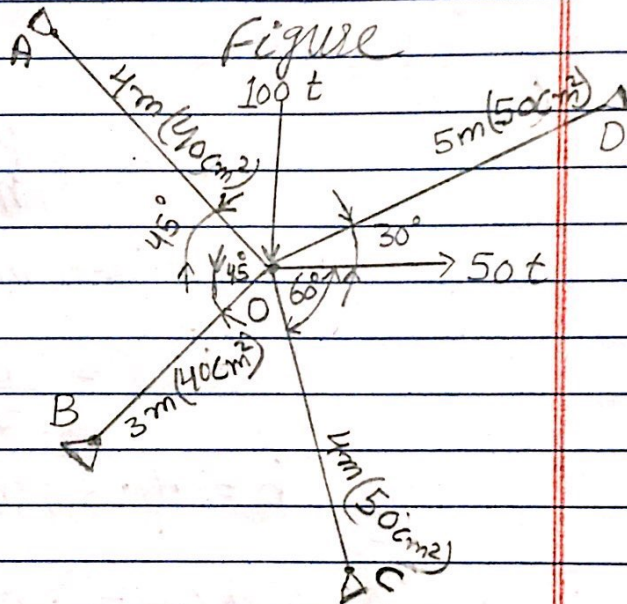 Figure
A
100 t
4m(40cm²)
5m(50cm²)
D
45°
30°
45°
50 t
60°
O
3m(40cm²)
B
4m(50cm²)
C